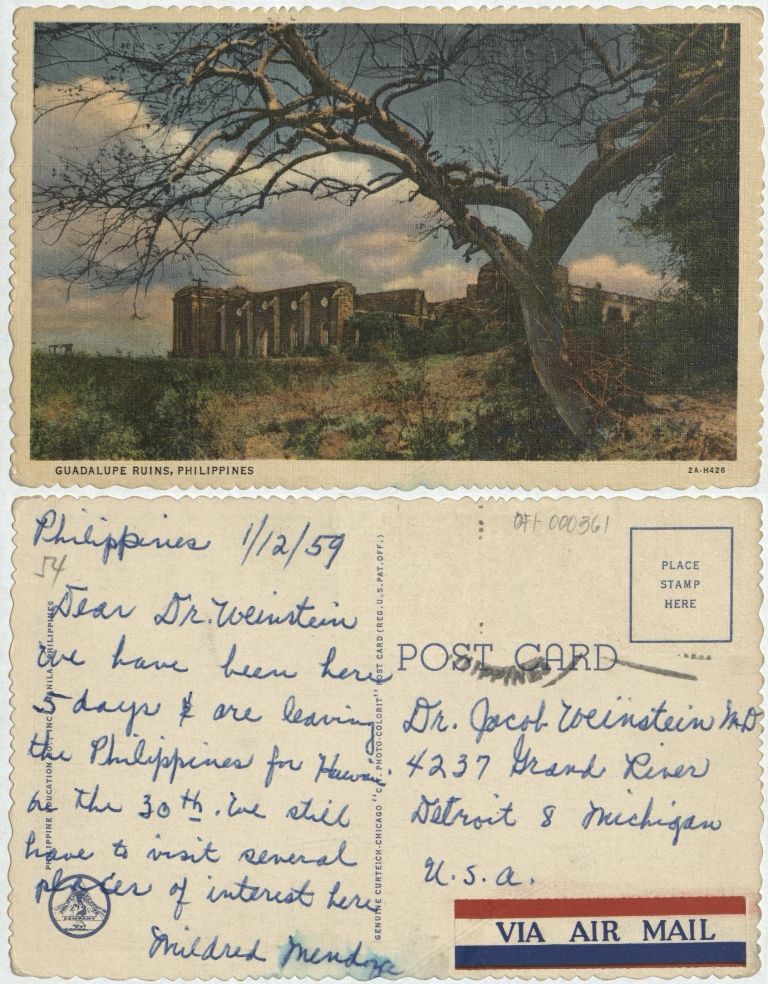 GUADALUPE RUINS, PHILIPPINES
2A-H426
Philippines 1/12/59
54
Dear Dr. Weinstein
We have been here
5 days & are leaving
the Philippines for Hawaii
on the 30th. We still
have to visit several
places of interest here
Mildred Mendoza
PHILIPPINE EDUCATION CO., INC. MANILA, PHILIPPINES
COMPANY
GENUINE CURTEICH-CHICAGO "C.T. PHOTO-COLORIT" POST CARD (REG. U.S. PAT. OFF.)
000361
PLACE
STAMP
HERE
POST CARD
PPINES
Dr. Jacob Weinstein M.D
4237 Grand River
Detroit 8 Michigan
U.S.A.
VIA AIR MAIL